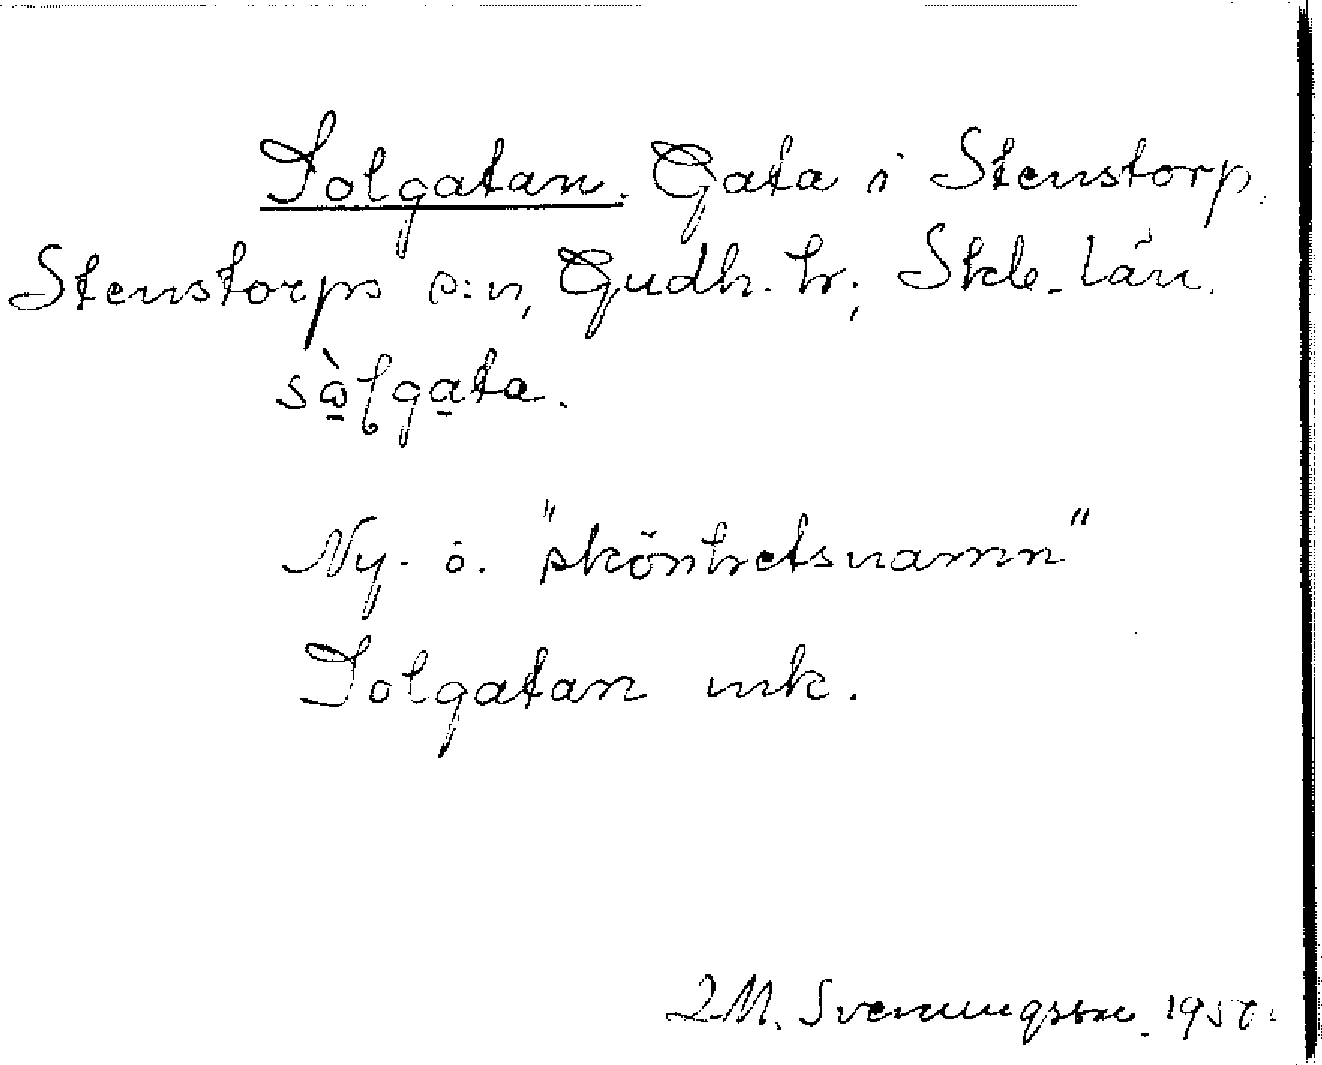 Solgatan. Gata i Stenstorp.
Stenstorps s:n, Gudh. hr; Skb. län.
sò̱lga̱ta.
Ny- o. "skönhetsnamn"
Solgatan mk.
Svenningsson 195